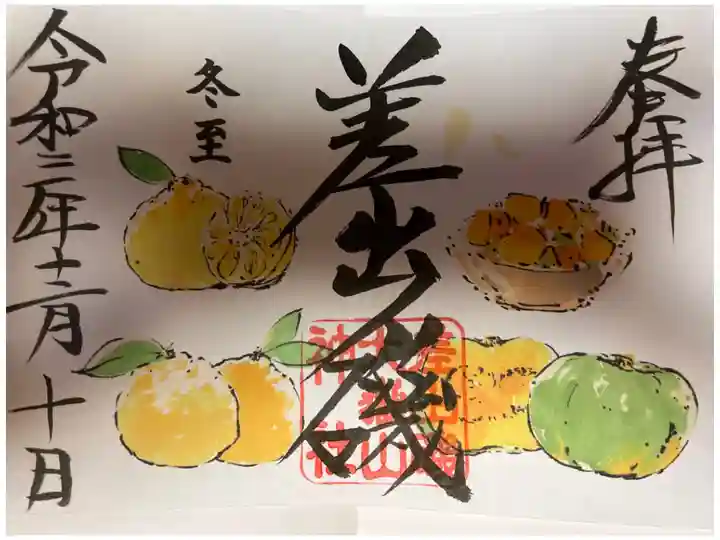 奉拝
差出磯
差出磯
大嶽山
神社
冬至
令和三年十二月十日